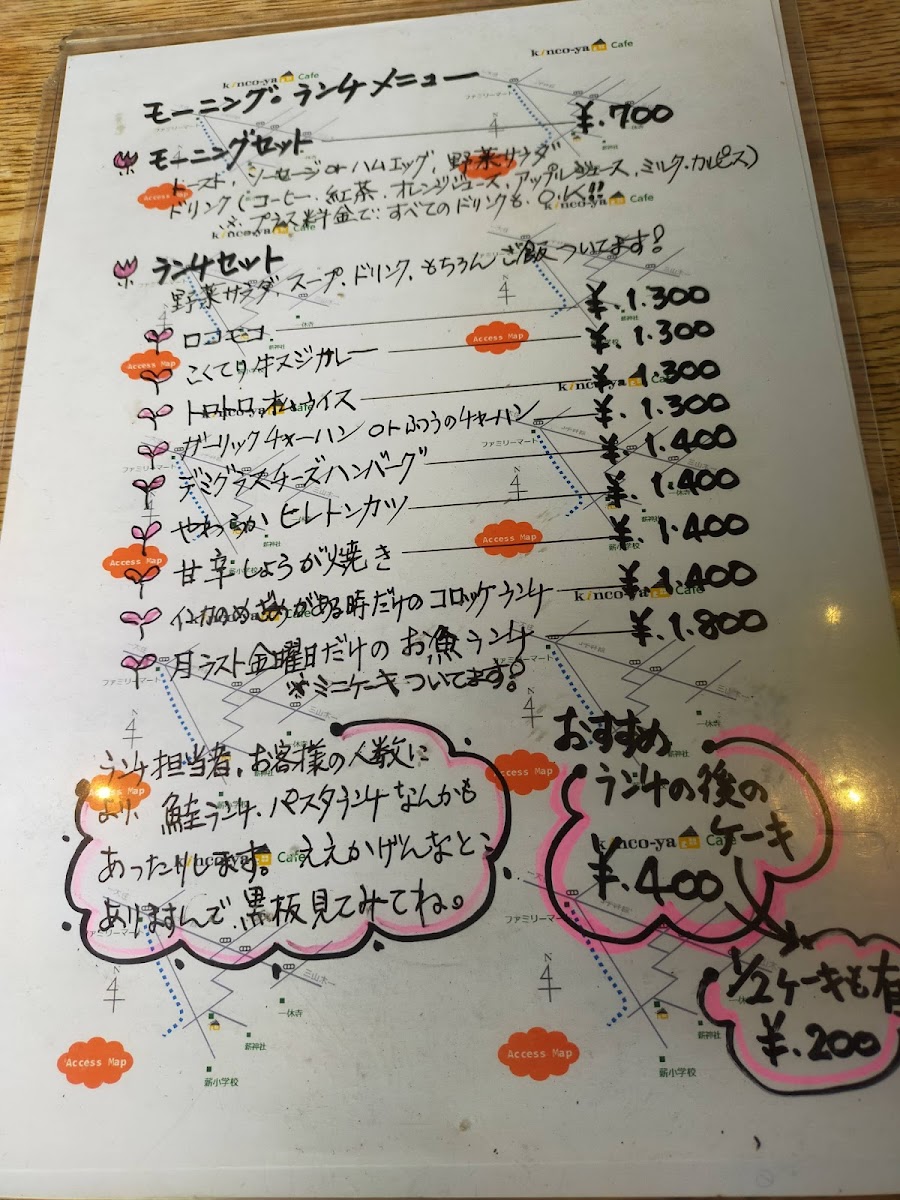 kinco-ya Cafe
モーニング・ランチメニュー
モーニングセット ¥.700
トースト、ソーセージorハムエッグ、野菜サラダ
ドリンク(コーヒー、紅茶、オレンジジュース、アップルジュース、ミルク・カルピス)
※プラス料金で、すべてのドリンクも、O.K!!
ランチセット
野菜サラダ、スープ、ドリンク、もちろんご飯ついてます!
ロコモコ ¥.1.300
こくてり牛スジカレー ¥.1.300
トロトロオムライス ¥.1.300
ガーリックチャーハンorふつうのチャーハン ¥.1.300
デミグラスチーズハンバーグ ¥.1.400
やわらかヒレトンカツ ¥.1.400
甘辛しょうが焼き ¥.1.400
インカのめざめがある時だけのコロッケランチ ¥.1.400
月ラスト金曜日だけのお魚ランチ ¥.1.800
※ミニケーキついてます!
ランチ担当者、お客様の人数に
より、鮭ランチ、パスタランチなんかも
あったりします。ええかげんなとこ
ありますんで黒板見てみてね。
おすすめ
ランチの後の
ケーキ
¥.400
1/2ケーキも有
¥.200
Access Map
ファミリーマート
一休寺
薪神社
薪小学校